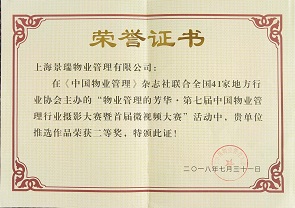 荣誉证书
上海景瑞物业管理有限公司：
在《中国物业管理》杂志社联合全国41家地方行
业协会主办的“物业管理的芳华·第七届中国物业管
理行业摄影大赛暨首届微视频大赛”活动中，贵单位
推选作品荣获二等奖，特颁此证！
二〇一八年七月三十一日